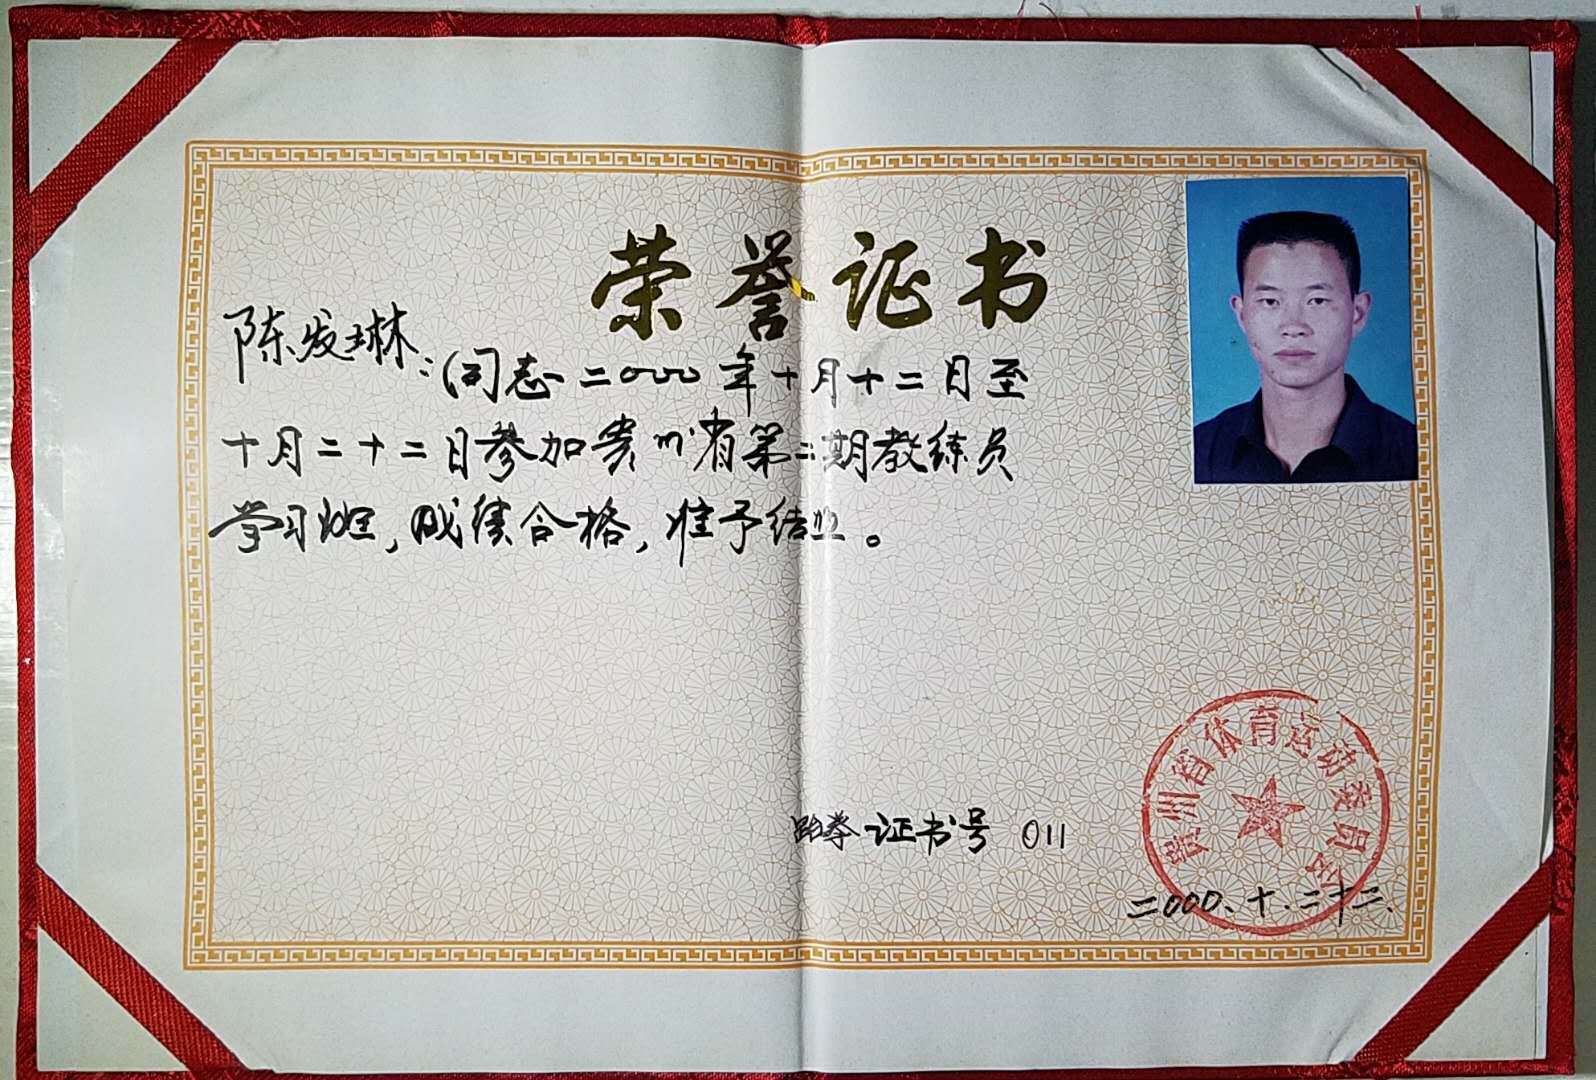 荣誉证书
陈发琳：
(同志二〇〇〇年十月十二日至
十月二十二日参加贵州省第二期教练员
学习班，成绩合格，准予结业。
跆拳证书号 011
贵州省体育运动委员会
二〇〇〇、十、二十二、